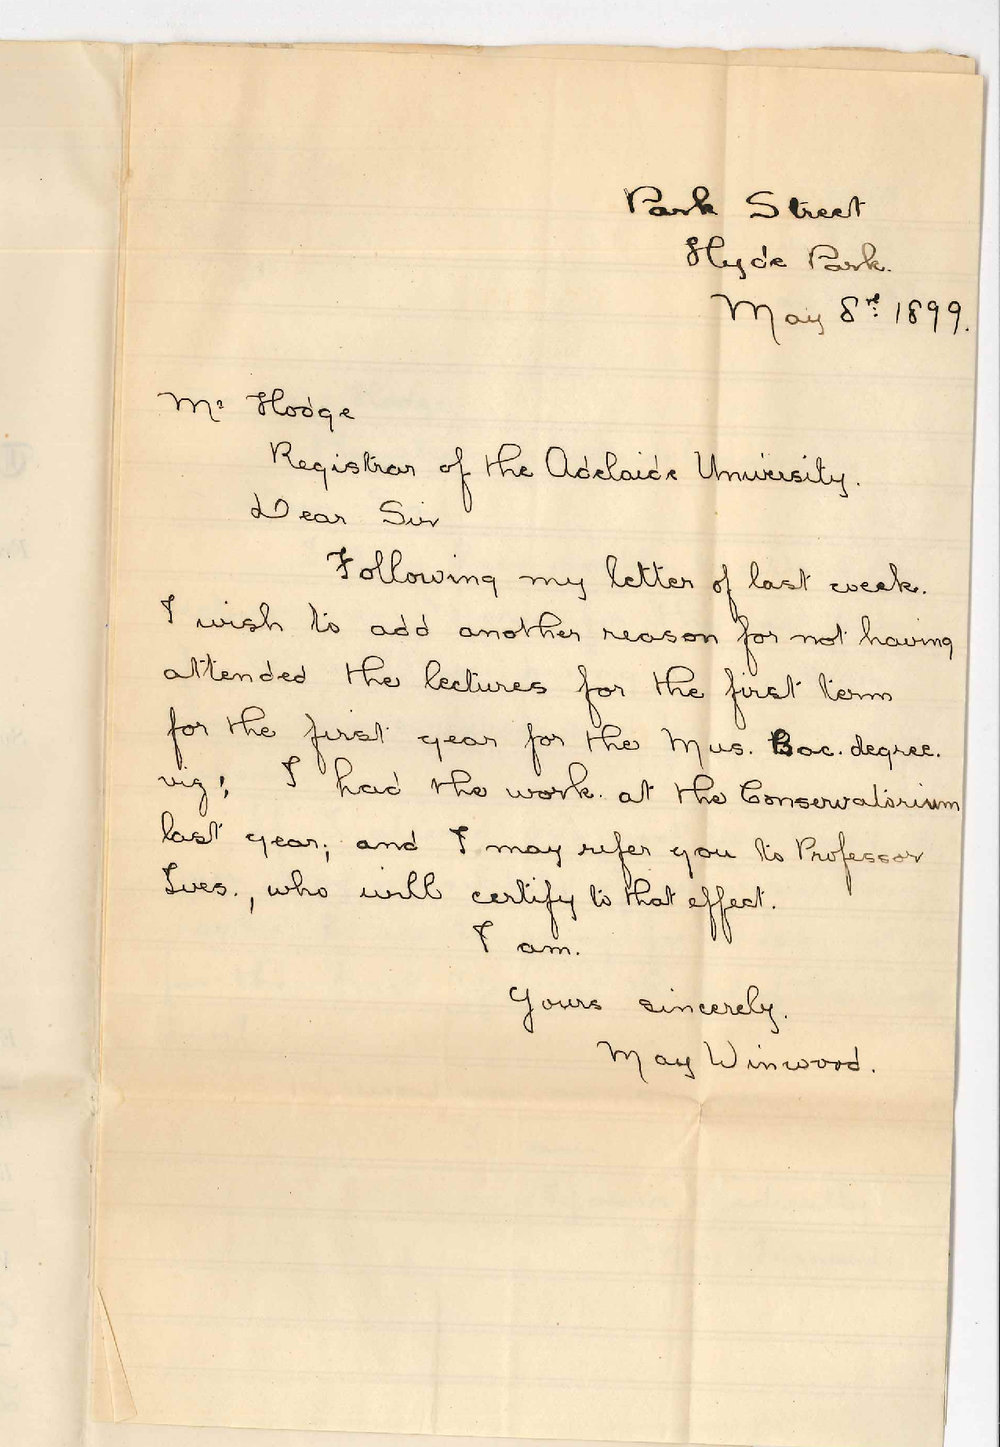 Park Street
Hyde Park.
May 8rd 1899.
Mr Hodge
Registrar of the Adelaide University.
Dear Sir
Following my letter of last week.
I wish to add another reason for not having
attended the lectures for the first term
for the first year for the Mus. Bac. degree.
viz; I had the work. at the Conservatorium
last year; and I may refer you to Professor
Ives., who will certify to that effect.
I am.
Yours sincerely.
May Winwood.